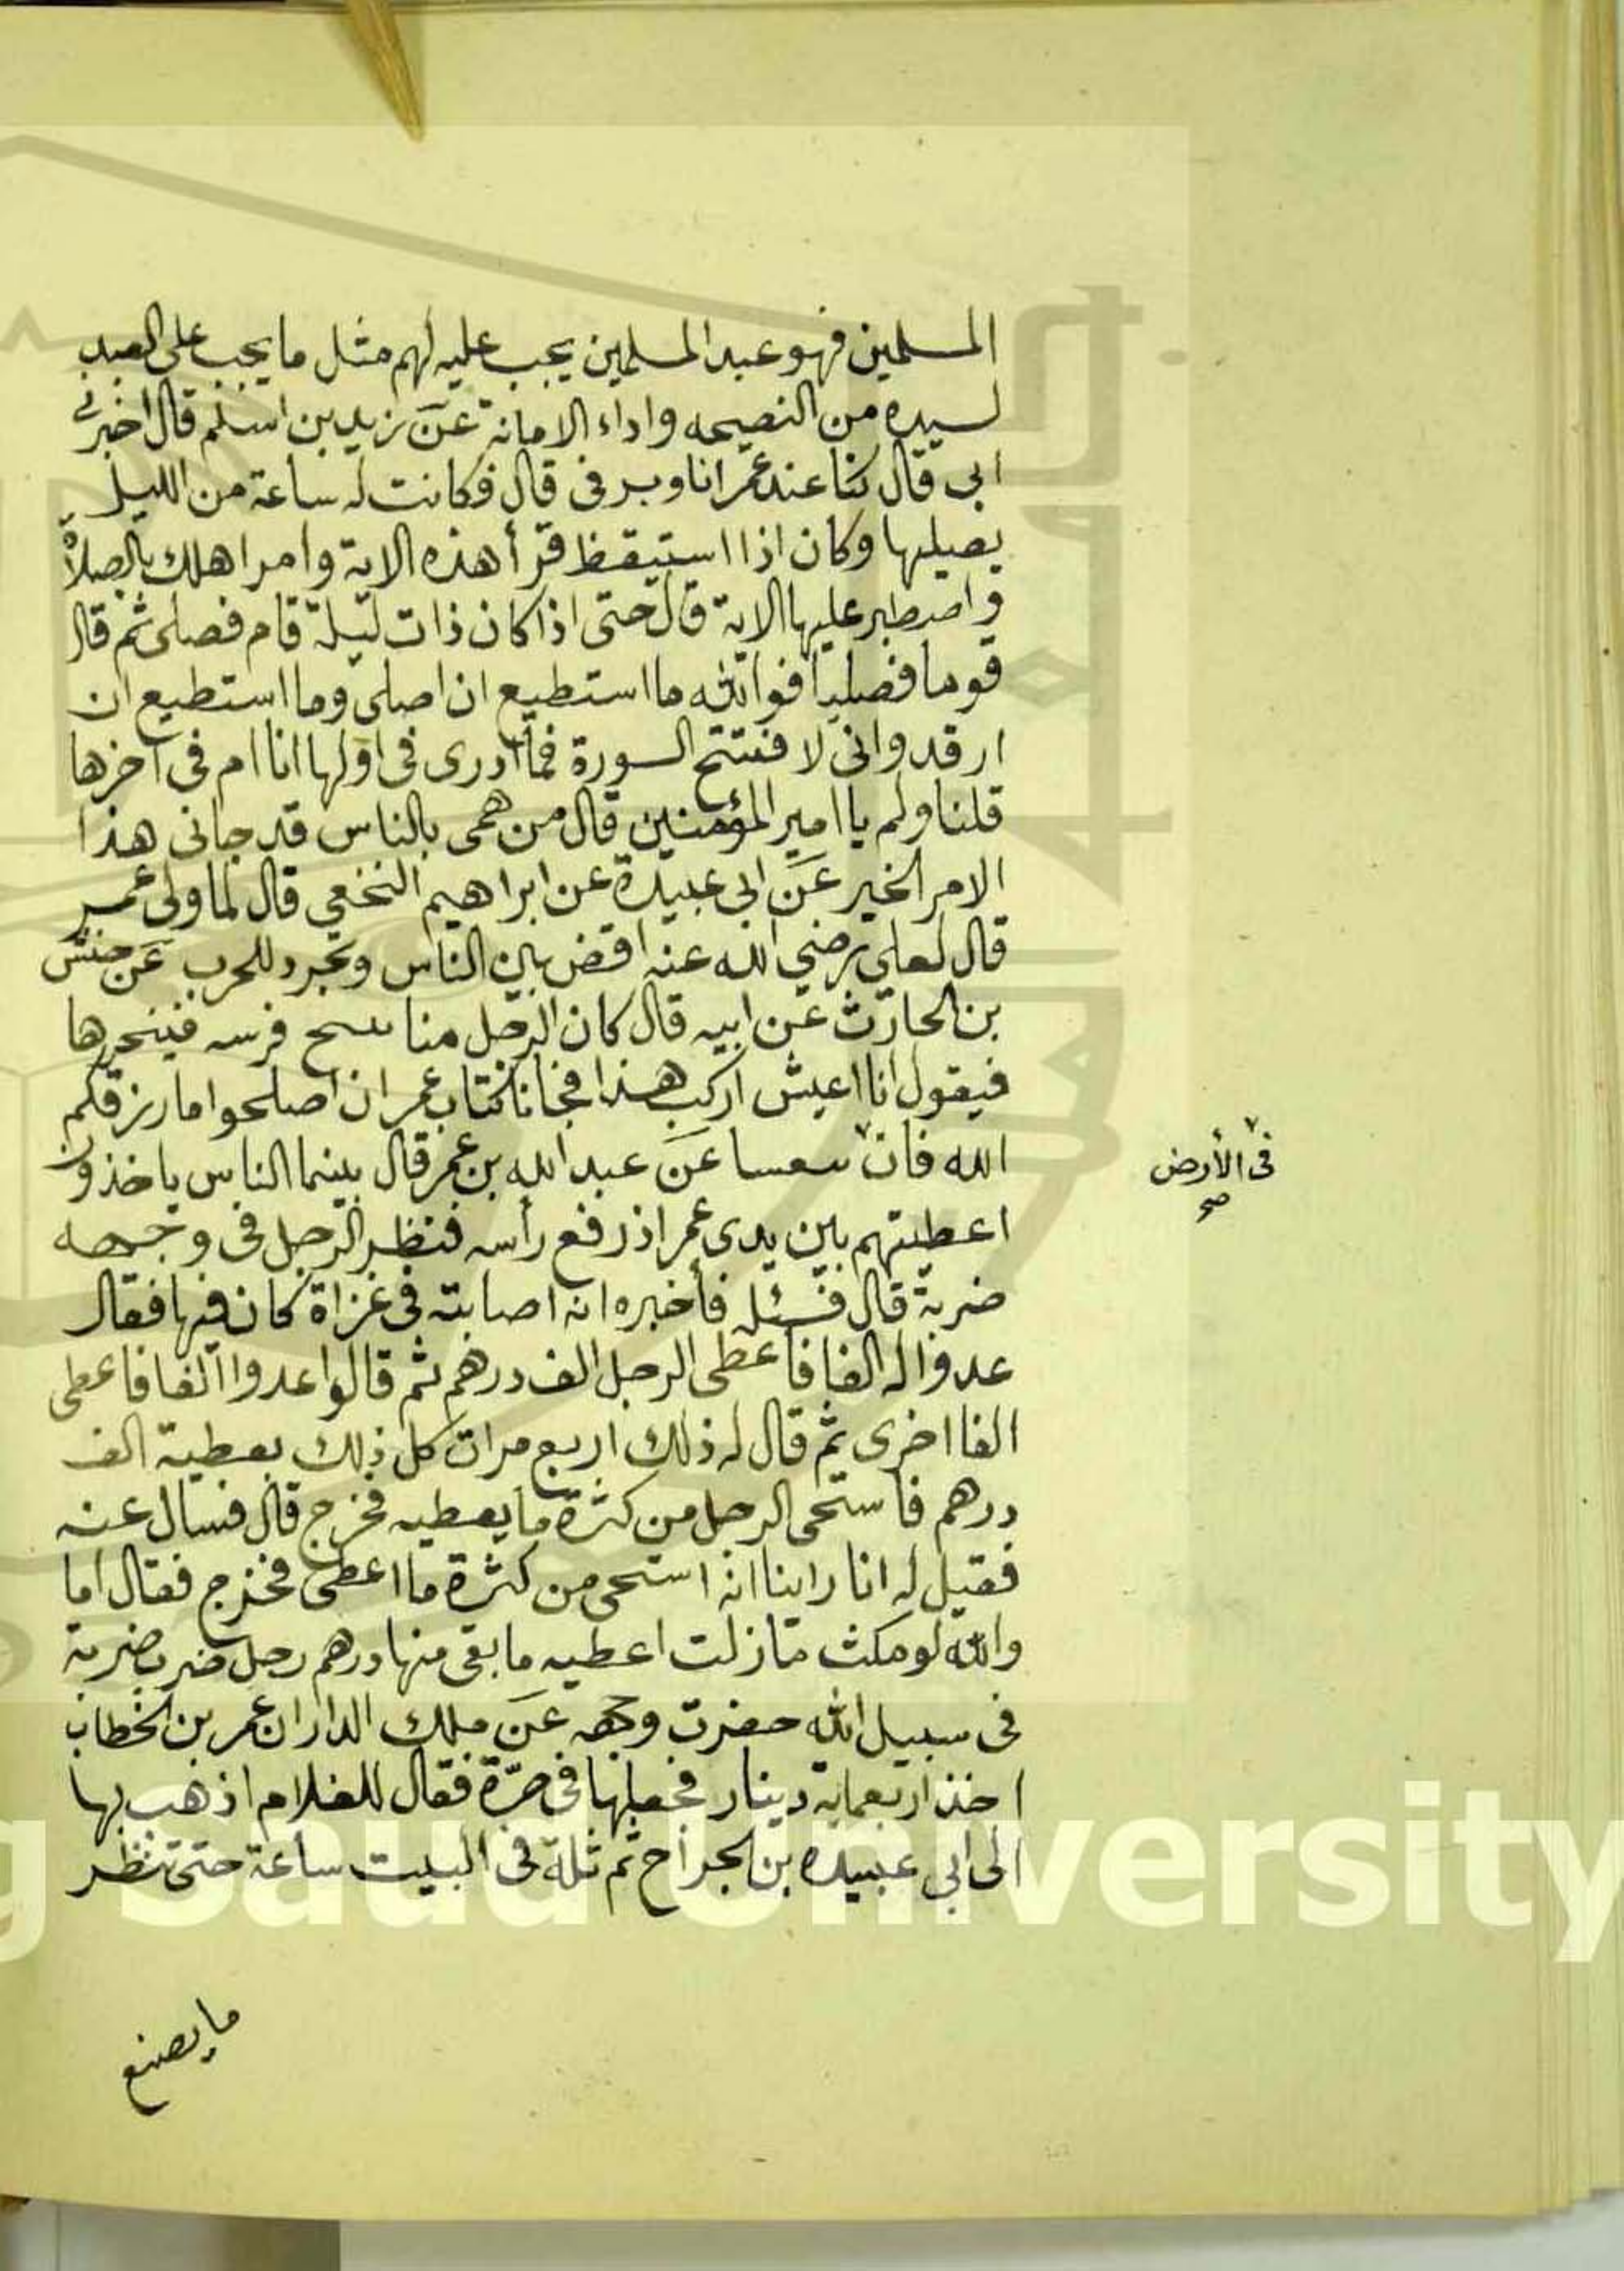 المسلمين فهو عبد المسلمين يجب عليه لهم مثل ما يجب على العبد
لسيده من النصيحه واداء الامانة عن زيد بن اسلم قال اخبرني
ابي قال كنا عند عمر انا ويرفى قال فكانت له ساعة من الليل
يصليها وكان اذا استيقظ قرأ هذه الاية وامر اهلك بالصلاة
واصطبر عليها الاية قال حتى اذا كان ذات ليلة قام فصلى ثم قال
قوما فصليا فوالله ما استطيع ان اصلى وما استطيع ان
ارقد وانى لا فتتح السورة فما ادرى فى اولها انا ام فى آخرها
قلنا ولم يا امير المؤمنين قال من همى بالناس قد جانى هذا
الامر الخير عن ابى عبيدة عن ابراهيم النخعي قال لما ولى عمر
قال لعلي رضي الله عنه اقض بين الناس وتجرد للحرب عن حنش
بن الحارث عن ابيه قال كان الرجل منا فرسه فينحرها
فيقول انا اعيش اركب هذا فجانا كتاب عمر ان اصلحوا ما رزقكم
الله فان عن عبد الله بن عمر قال بينما الناس ياخذون
فى الأرض
صح
اعطيتهم بين يدى عمر اذ رفع رأسه فنظر الرجل فى وجهه
ضربة قال فسئله فأخبره انه اصابته فى غزاة كان فيها فقال
عدوا له الفا فأعطى الرجل الف درهم ثم قالوا عدوا الفا فاعطى
الفا اخرى ثم قال له ذلك اربع مرات كل ذلك يعطية الف
درهم فاستحى الرجل من كثرة ما يعطيه فخرج قال فسال عنه
فقيل له انا راينا انه استحى من كثرة ما اعطى فخرج فقال اما
والله لو مكث ما زلت اعطيه ما بقى منها درهم رجل ضرب ضربة
فى سبيل الله حضرت وجهه عن ملك الدار ان عمر بن الخطاب
اخذ اربعماية دينار فجعلها فى صرة فقال للغلام اذهب بها
الى ابي عبيده بن الجراح ثم تله فى البيت ساعة حتى تنظر
ما يصنع
g Saud University